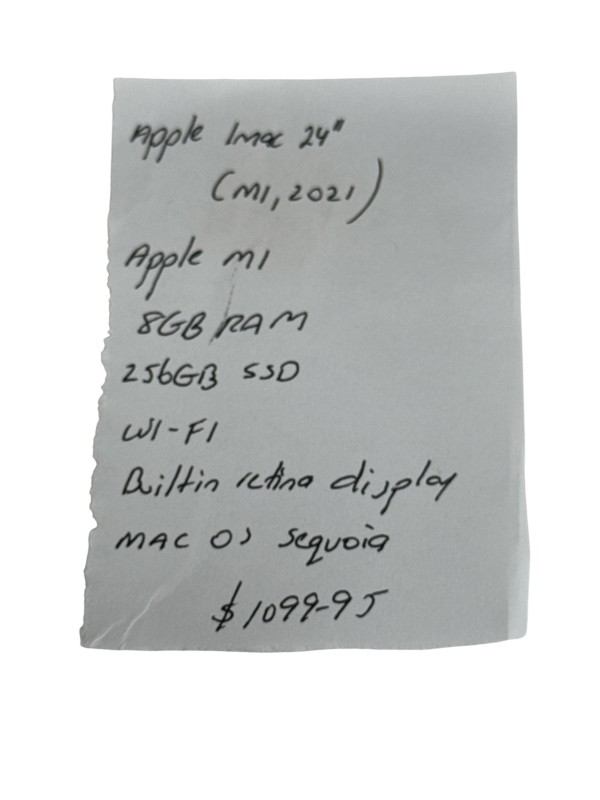 Apple Imac 24"
(M1, 2021)
Apple M1
8GB RAM
256GB SSD
WI-FI
Builtin retina display
MAC OS Sequoia
$1099-95